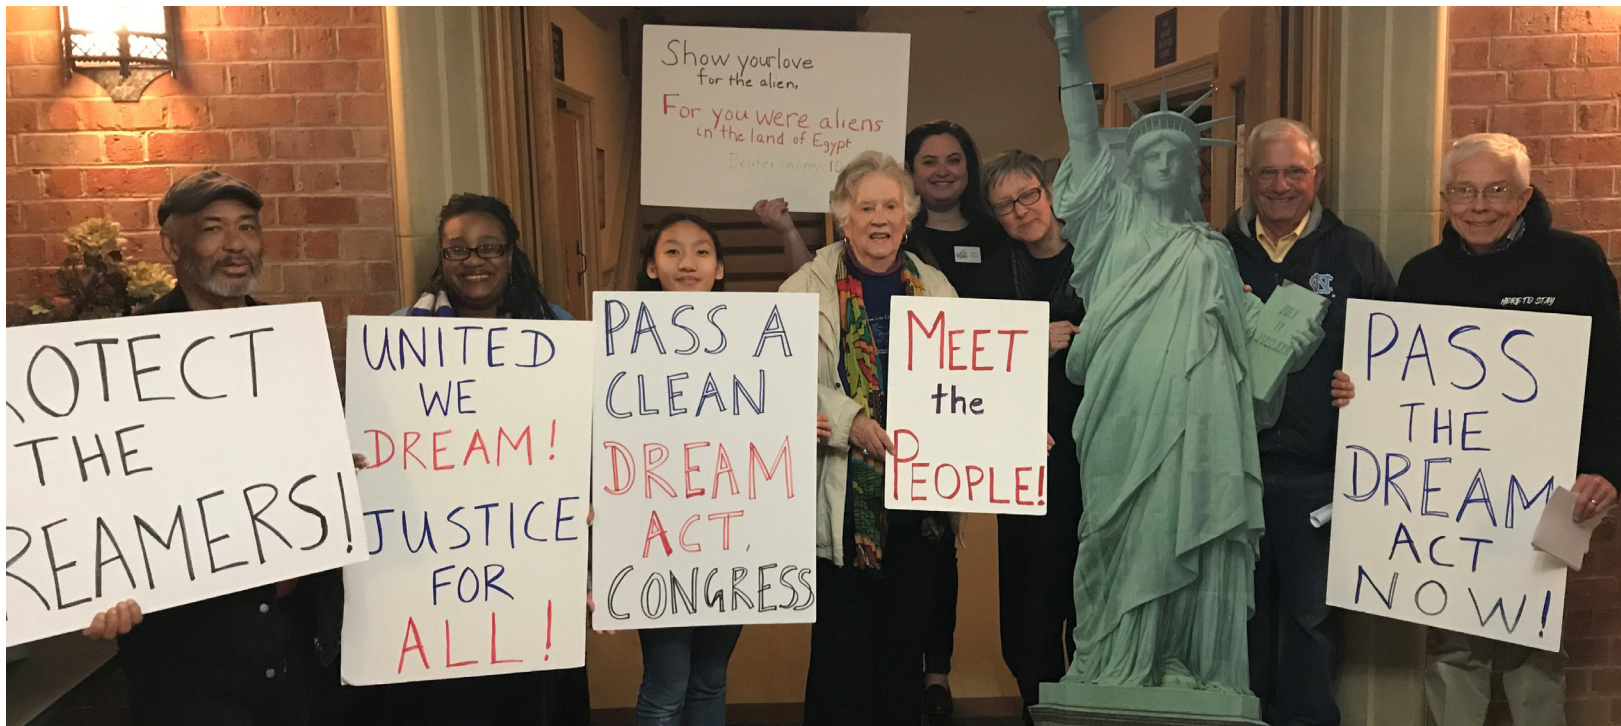 Show your love
for the alien,
For you were aliens
in the land of Egypt
Deuteronomy 10
OTECT
THE
REAMERS!
UNITED
WE
DREAM!
JUSTICE
FOR
ALL!
PASS A
CLEAN
DREAM
ACT,
CONGRESS
MEET
the
PEOPLE!
JULY
HERE TO STAY
PASS
THE
DREAM
ACT
NOW!